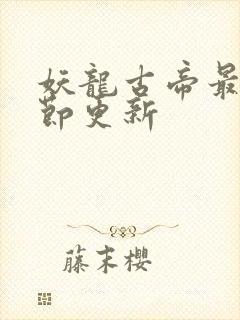 妖龍古帝最
節更新
藤末櫻